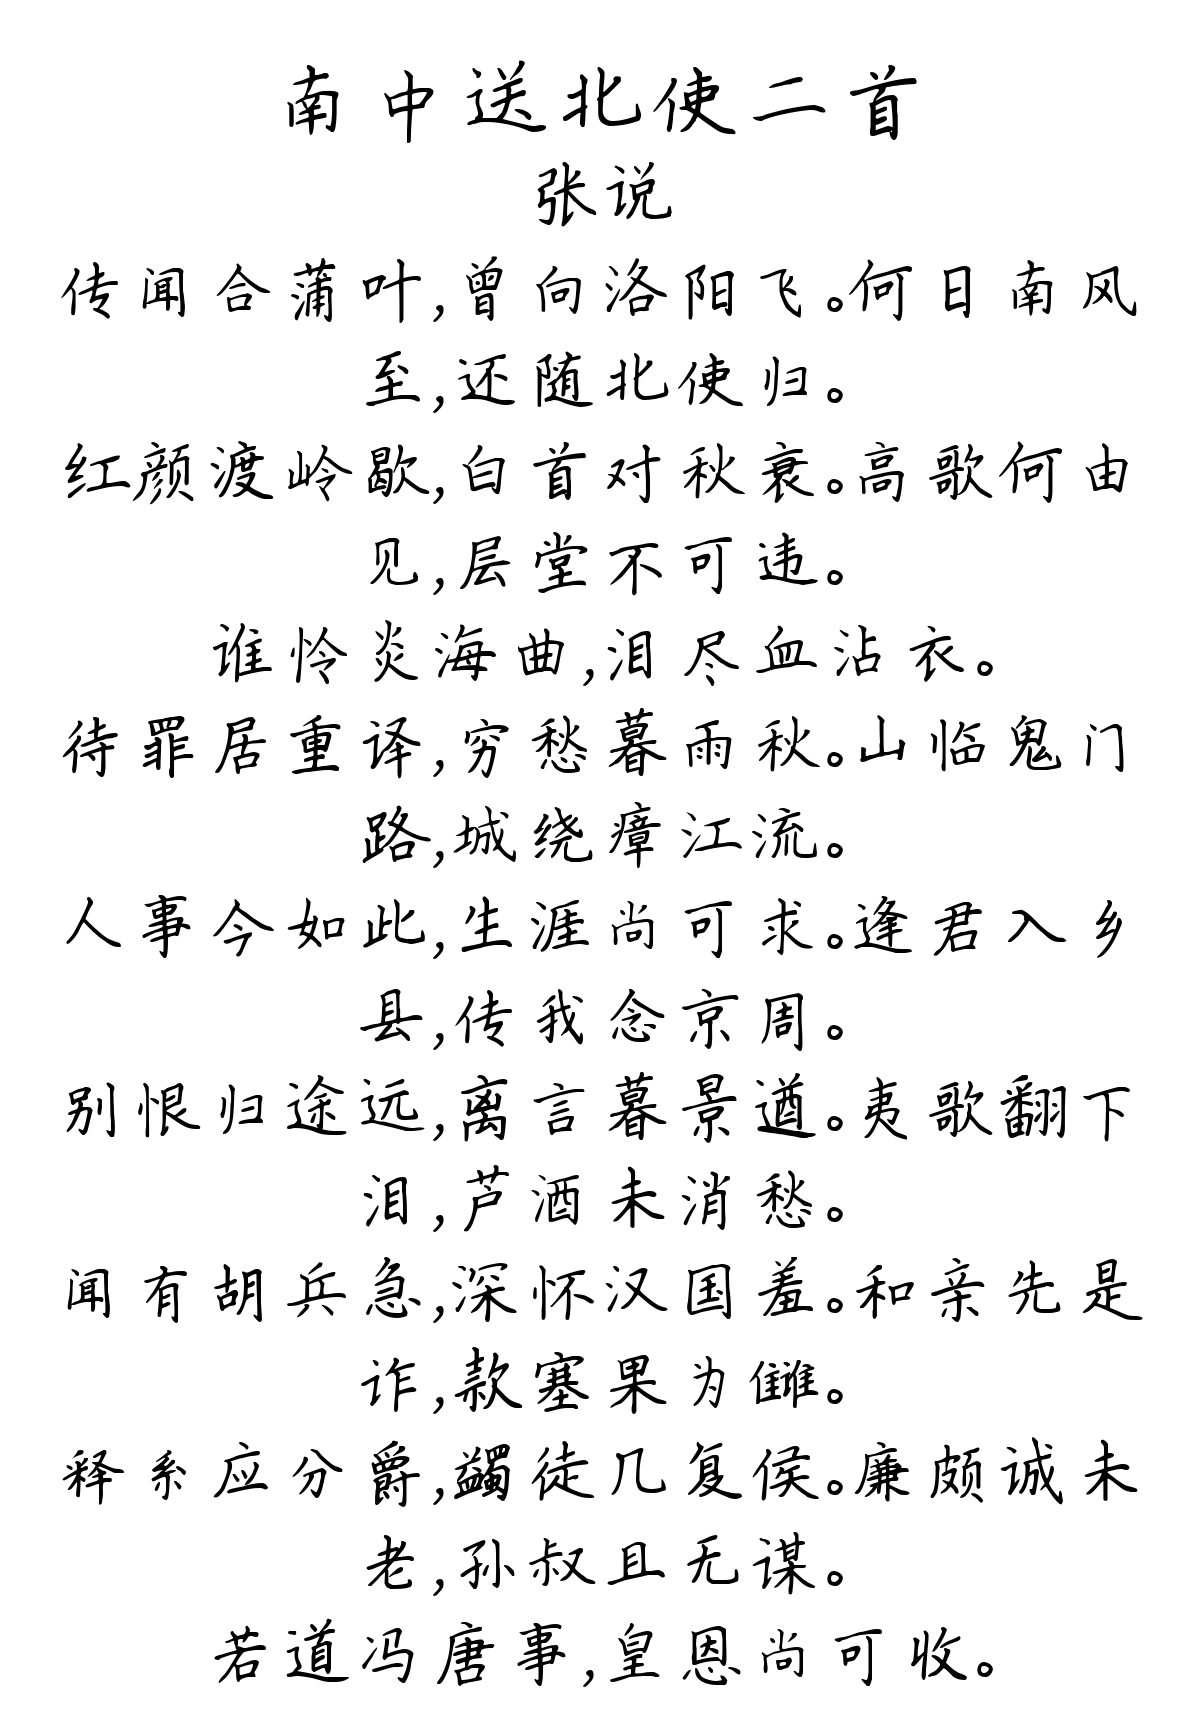 南中送北使二首
张说
传闻合蒲叶,曾向洛阳飞。何日南风
至,还随北使归。
红颜渡岭歇,白首对秋衰。高歌何由
见,层堂不可违。
谁怜炎海曲,泪尽血沾衣。
待罪居重译,穷愁暮雨秋。山临鬼门
路,城绕瘴江流。
人事今如此,生涯尚可求。逢君入乡
县,传我念京周。
别恨归途远,离言暮景遒。夷歌翻下
泪,芦酒未消愁。
闻有胡兵急,深怀汉国羞。和亲先是
诈,款塞果为雠。
释系应分爵,蠲徒几复侯。廉颇诚未
老,孙叔且无谋。
若道冯唐事,皇恩尚可收。